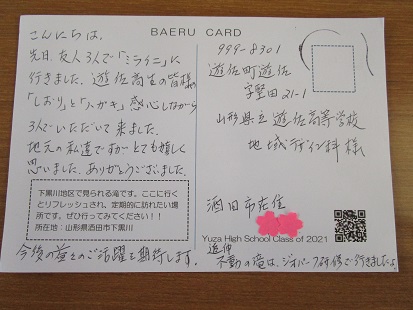 BAERU CARD
こんにちは。
先日、友人3人で「ミライニ」に
行きました。遊佐高生の皆様の
「しおり」と「ハガキ」感心しながら
3人でいただいて来ました。
地元の私達ですがとても嬉しく
思いました。ありがとうございました。
下黒川地区で見られる滝です。ここに行く
とリフレッシュされ、定期的に訪れたい場
所です。ぜひ行ってみてください！！
所在地：山形県酒田市下黒川
今後の益々のご活躍を期待します。
999-8301
遊佐町遊佐
字堅田21-1
山形県立 遊佐高等学校
地域デザイン科 様
酒田市在住
Yuza High School Class of 2021
追伸
不動の滝は、ジオパーク研修で行きましたよ